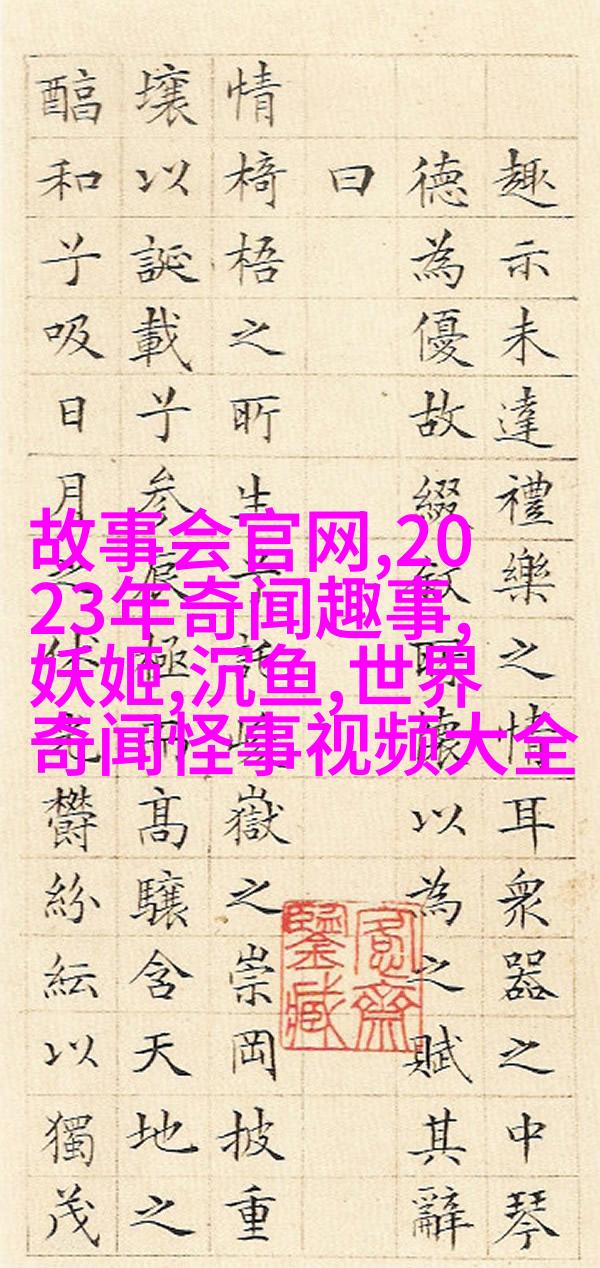 趣示未達禮樂之情耳衆器之中琴
德為優故綴敘所懷以為之賦其辭
曰
情椅梧之所生兮託峻嶽之崇岡披重
壤以誕載兮参辰極而高驤含天地之
醕和兮吸日月之休光鬱紛紜以獨茂
愙齋
鑒藏
故事会官网,20
23年奇闻趣事,
妖姬,沉鱼,世界
奇闻怪事视频大全